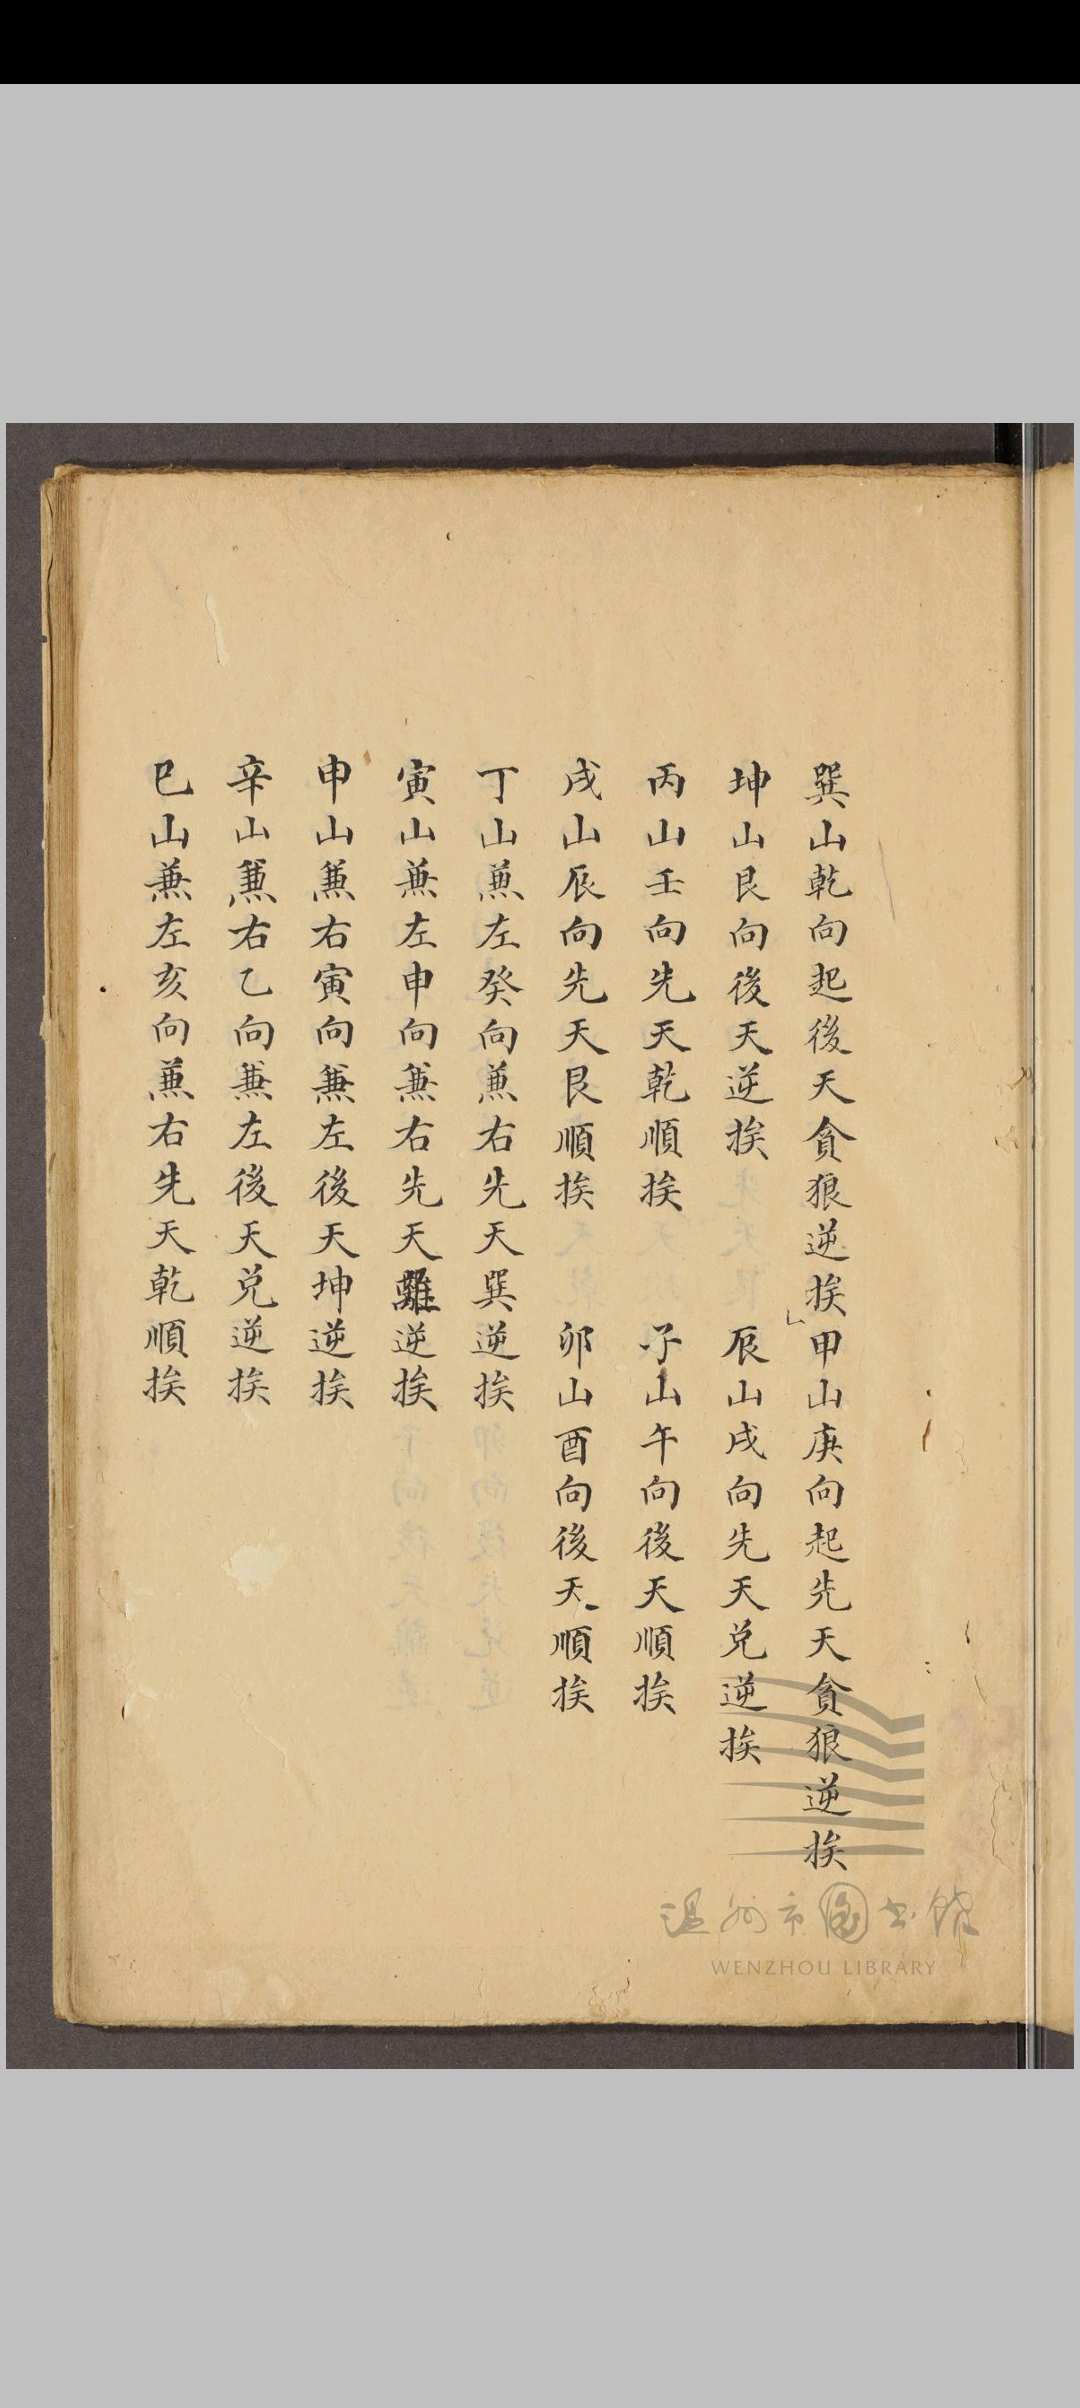 巽山乾向起後天貪狼逆挨甲山庚向起先天貪狼逆挨
坤山艮向後天逆挨　辰山戌向先天兌逆挨
丙山壬向先天乾順挨　子山午向後天順挨
戌山辰向先天艮順挨　卯山酉向後天順挨
丁山兼左癸向兼右先天巽逆挨
寅山兼左申向兼右先天離逆挨
申山兼右寅向兼左後天坤逆挨
辛山兼右乙向兼左後天兌逆挨
巳山兼左亥向兼右先天乾順挨
温州市图书馆
WENZHOU LIBRARY